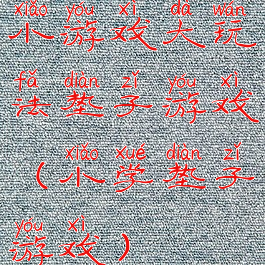 xiǎo yóu xì dà wán
小游戏大玩
fǎ diàn zǐ yóu xì
法垫子游戏
xiǎo xué diàn zǐ
(小学垫子
yóu xì
游戏)